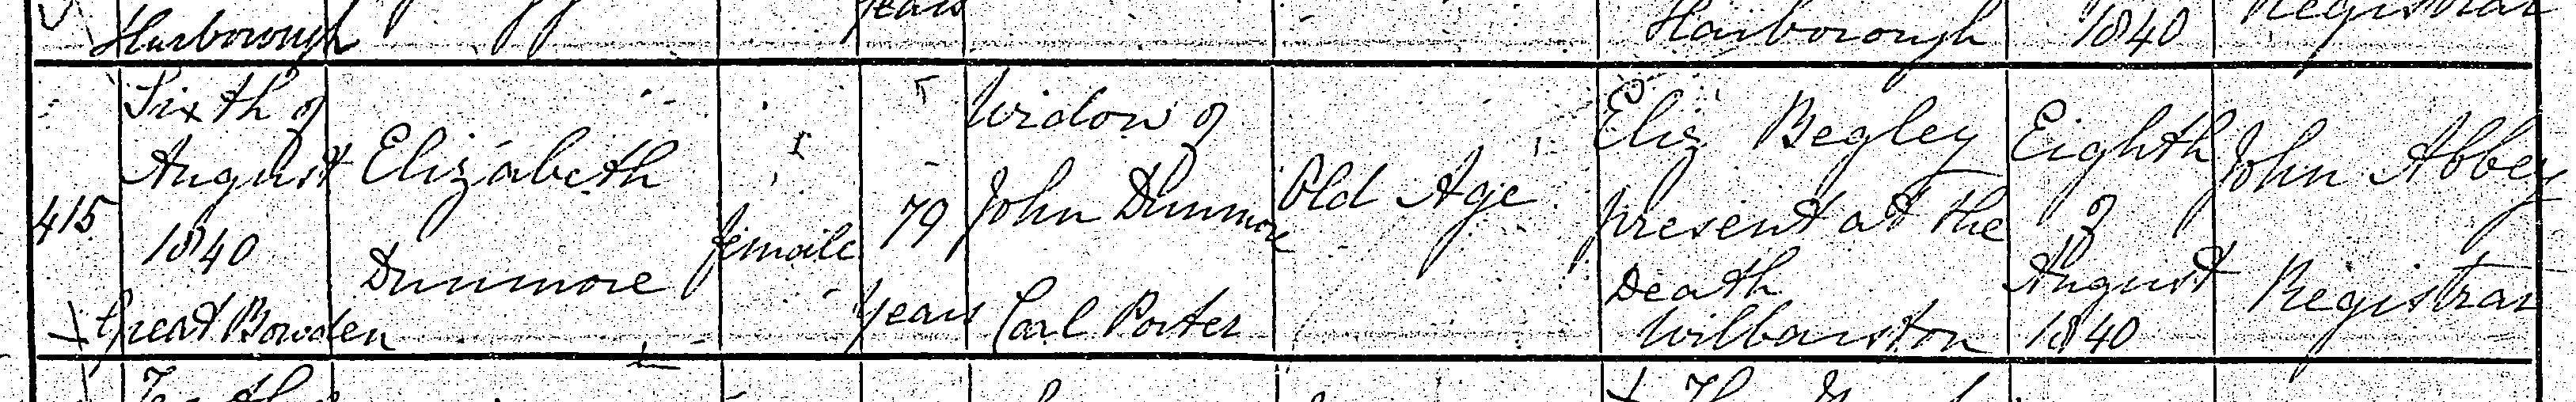 Harborough
years
Harborough
1840
Registrar
415
Sixth of
August
1840
Great Bowden
Elizabeth
Dunmore
female
79
years
Widow of
John Dunmore
Coal Porter
Old Age
Eliz Begley
present at the
Death
Wilbarston
Eighth
of
August
1840
John Abbey
Registrar